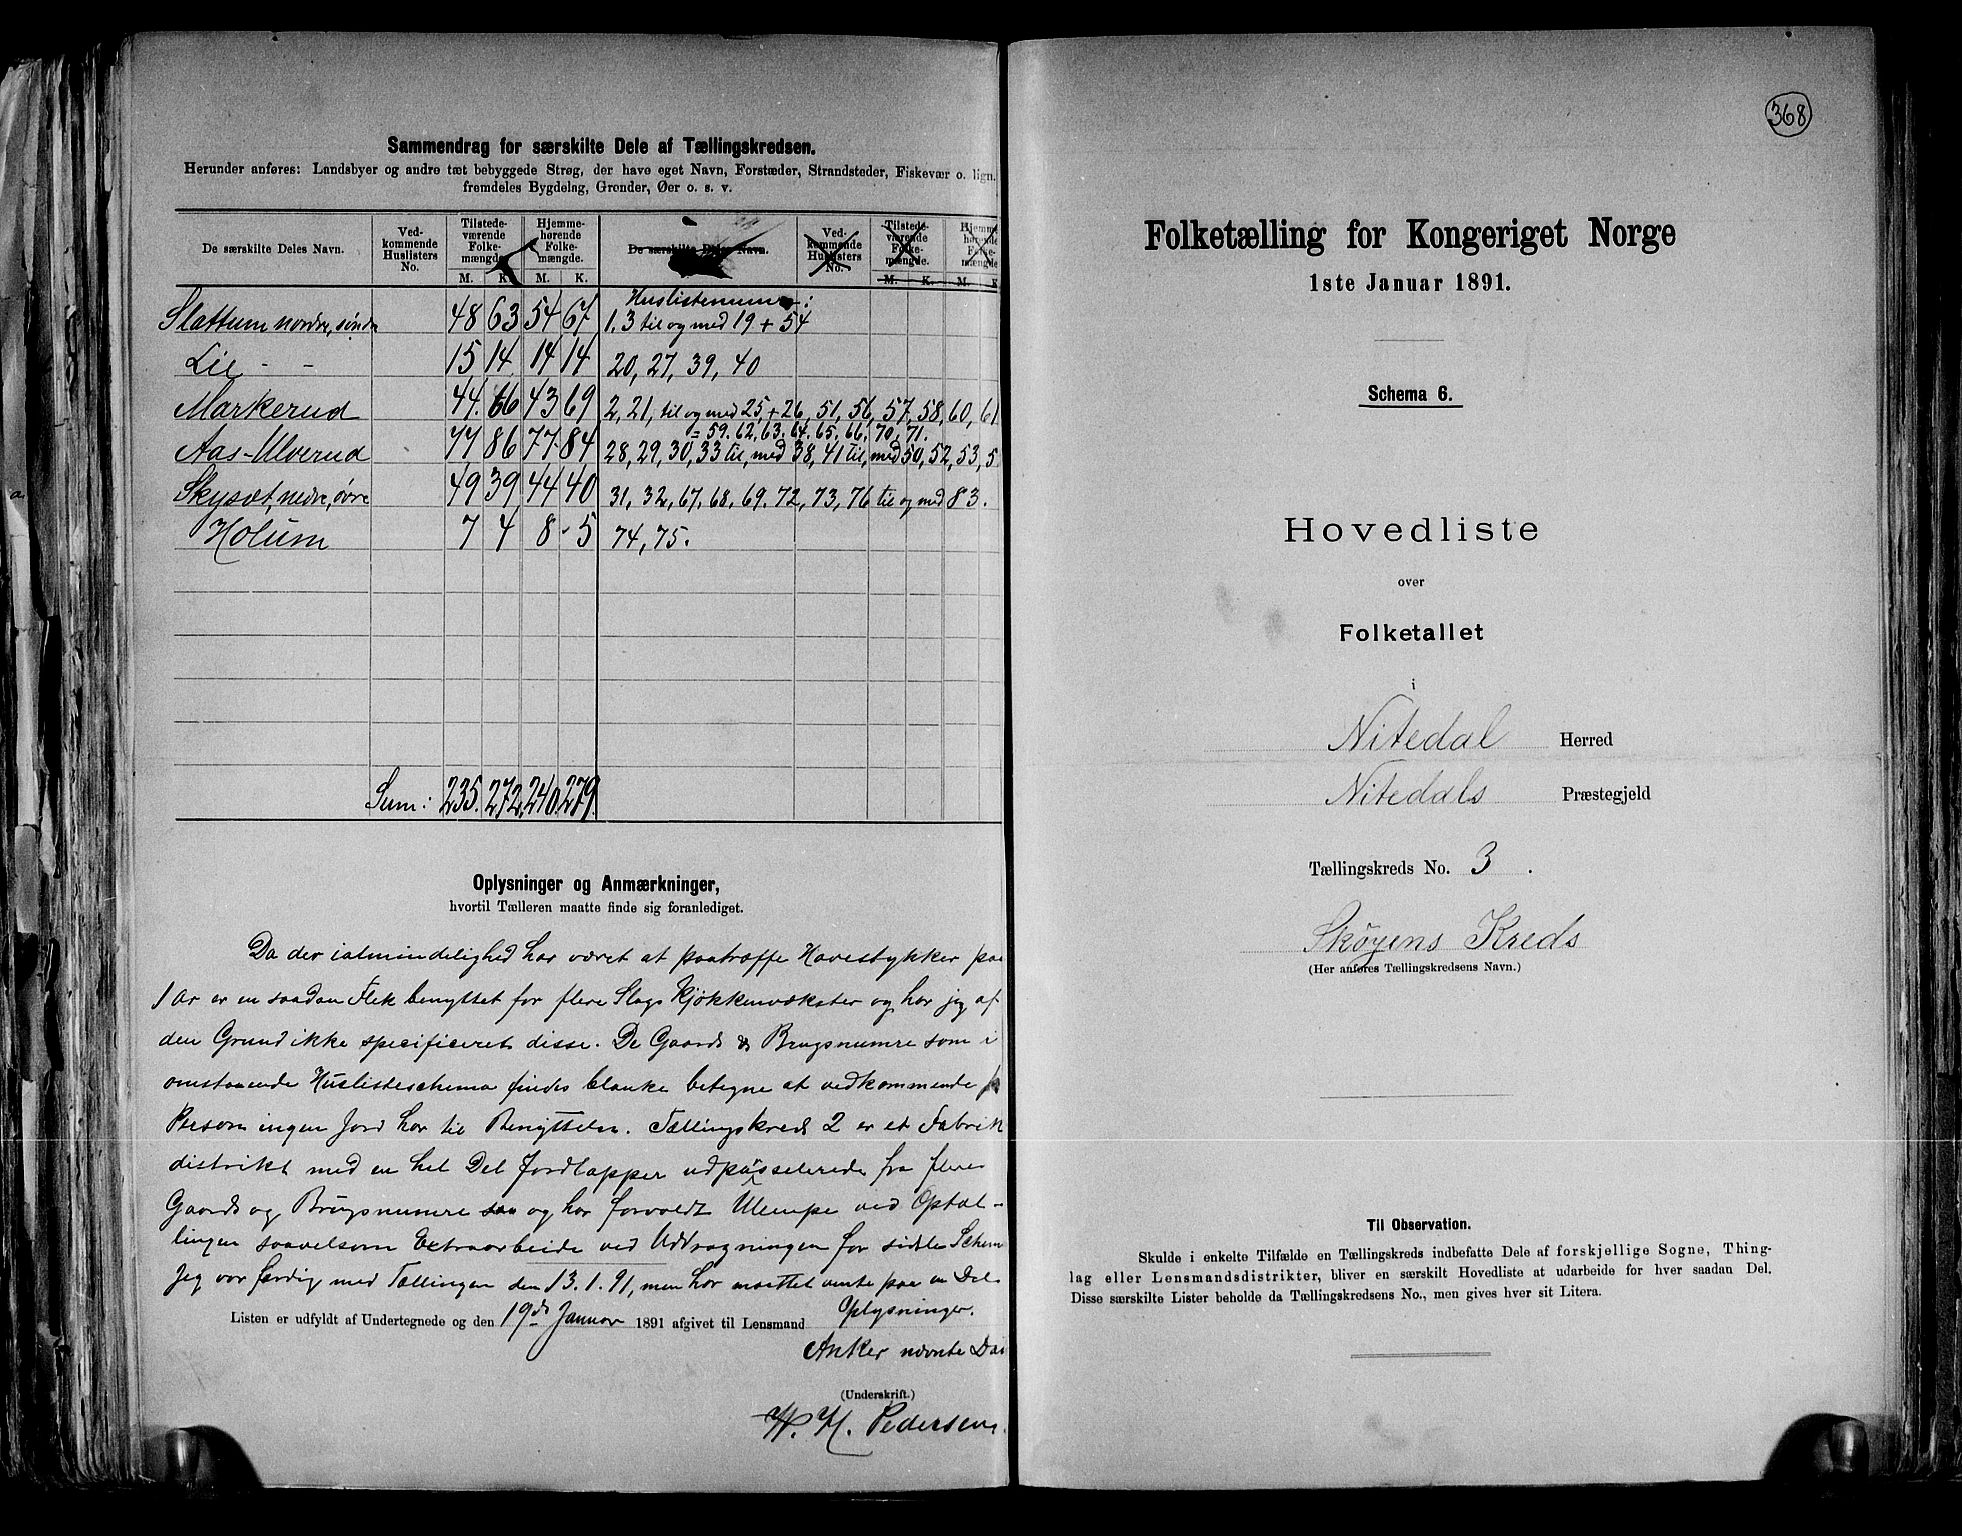 Sammendrag for særskilte Dele af Tællingskredsen.
Herunder anføres: Landsbyer og andre tæt bebyggede Strøg, der have eget Navn, Forstæder, Strandsteder, Fiskevær o. lign.
fremdeles Bygdelag, Grender, Øer o. s. v.
De særskilte Deles Navn. Ved-kommende Huslisters No. Tilstede-værende Folke-mængde. Hjemme-hørende Folke-mængde. De særskilte Deles Navn. Ved-kommende Huslisters No. Tilstede-værende Folke-mængde. Hjemme-hørende Folke-mængde
M. K. M. K. M. K. M. K
Huslistenumre:
Slattum nordre, søndre 48 63 54 67 1. 3 til og med 19 + 54
Lie - - 15 14 14 14 20, 27, 39, 40
Markerud 44. 66 43 69 2, 21, til og med 25 + 26, 51, 56, 57, 58, 60, 61
= 59. 62, 63, 64. 65. 66, 70, 71.
Aas-Ulverud 77 86 77 84 28, 29, 30, 33 til, med 38, 41 til, med 50, 52, 53, 5
Skysæt, nedre, øvre 49 39 44 40 31, 32, 67, 68, 69. 72, 73, 76 til og med 83.
Holum 7 4 8 - 5 74, 75.
Sum: 235. 272. 240. 279.
Oplysninger og Anmærkninger,
hvortil Tælleren maatte finde sig foranlediget.
Da der i almindelighed har været at paatræffe Havestykker paa
1 Ar er en saadan Flek benyttet for flere Slags Kjøkkenvækster og har jeg af
den Grund ikke specificeret disse. De Gaards & Brugsnumre som i
omstaaende Huslisteschema findes blanke betegne at vedkommende
Person ingen Jord har til Benyttelse. Tællingskreds 2 er et Fabrik
distrikt med en hel Del Jordlapper udparselerede fra flere
Gaards og Brugsnumre og har forvoldt Ulempe ved Optæl-
lingen saavelsom Extraarbeide ved Uddragningen for sidste Schem
Jeg var færdig med Tællingen den 13.1.91, men har maattet vente paa en Del
Oplysninger.
Listen er udfyldt af Undertegnede og den 19de Januar 1891 afgivet til Lensmand
Anker nævnte Da
(Underskrift.)
H. H. Pedersen.
368
Folketælling for Kongeriget Norge
1ste Januar 1891.
Schema 6.
Hovedliste
over
Folketallet
i
Nitedal Herred
Nitedals Præstegjeld
Tællingskreds No. 3.
Skøyens Kreds
(Her anføres Tællingskredsens Navn.)
Til Observation.
Skulde i enkelte Tilfælde en Tællingskreds indbefatte Dele af forskjellige Sogne, Thing-
lag eller Lensmandsdistrikter, bliver en særskilt Hovedliste at udarbeide for hver saadan Del.
Disse særskilte Lister beholde da Tællingskredsens No., men gives hver sit Litera.